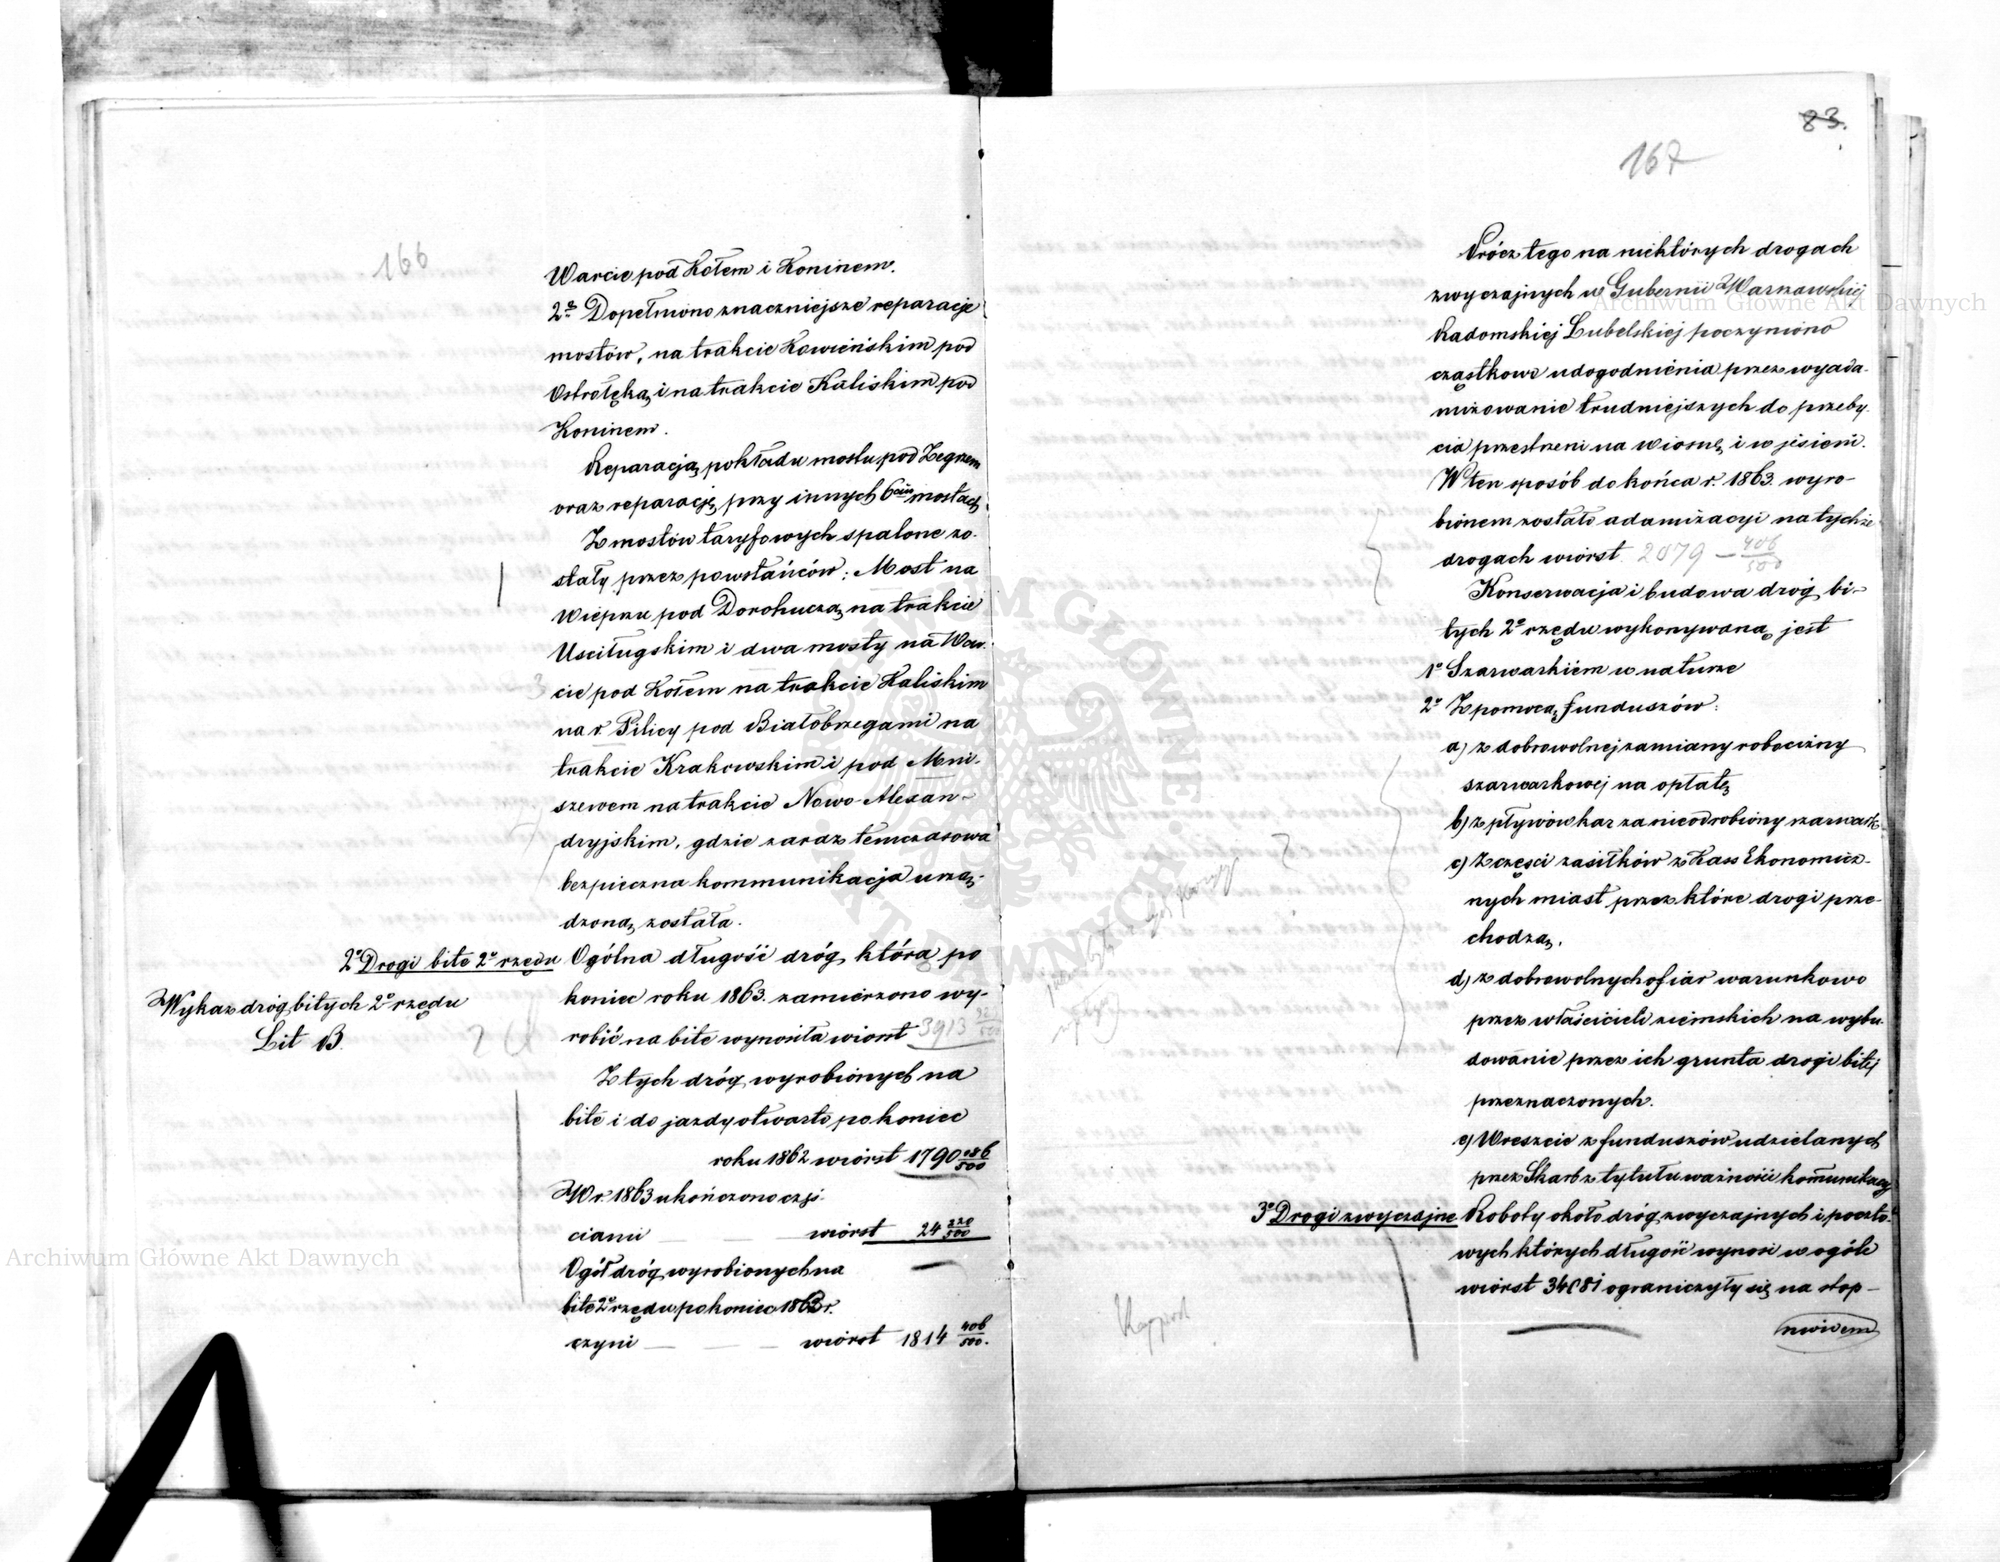 166
Warcie pod Kołem i Koninem.
2e Dopełniono znaczniejsze reparacje
mostów, na trakcie Kowieńskim pod
Ostrołęką, i na trakcie Kaliskim pod
Koninem.
Reparacją pokładu mostu pod Zegrzem
oraz reparację przy innych 6ciu mostach.
Z mostów taryfowych spalone zo-
stały przez powstańców: Most na
Wieprzu pod Dorohuczą, na trakcie
Usciługskim i dwa mosty na War-
cie pod Kołem na trakcie Kaliskim
na r. Pilicy pod Białobrzegami na
trakcie Krakowskim i pod Mni-
szewem na trakcie Nowo-Alexan-
dryjskim, gdzie zaraz temczasowa
bezpieczna kommunikacja urzą-
dzoną została.
2o Drogi bite 2o rzędu Ogólna długość dróg, którą po
Wykaz dróg bitych 2o rzędu
koniec roku 1863. zamierzono wy-
Lit B.
robić na bite wynosiła wiorst 3913
Z tych dróg wyrobionych na
bite i do jazdy otwarto po koniec
roku 1862 wiorst 1790 086/500
W r. 1863 ukończono częś-
ciami — — wiorst 24 320/500
Ogół dróg wyrobionych na
bite 2o rzędu po koniec 1863 r.
czyni — — — wiorst 1814 406/500.
83.
167
Prócz tego na niektórych drogach
zwyczajnych w Gubernii Warszawskiej
Radomskiej Lubelskiej poczyniono
cząstkowe udogodnienia przez wyada-
mizowanie trudniejszych do przeby-
cia przestrzeni na wiosnę i w jesieni.
W ten sposób do końca r. 1863. wyro-
bionem zostało adamizacyi na tychże
drogach wiorst 2079 — 406/500
Konserwacja i budowa dróg bi-
tych 2o rzędu wykonywaną jest
1o Szarwarkiem w naturze
2o Z pomocą funduszów:
a) z dobrowolnej zamiany robocizny
szarwarkowej na opłatę
b) z pływów kar za nieodrobiony szarwark
c) Z części zasiłków z Kass Ekonomicz-
nych miast przez które drogi prze-
chodzą.
d) z dobrowolnych ofiar warunkowo
przez właścicieli ziemskich na wybu-
dowanie przez ich grunta drogi bitej
przeznaczonych.
e) Wreszcie z funduszów udzielanych
przez Skarb z tytułu ważności komunikacyj
3o Drogi zwyczajne Roboty około dróg zwyczajnych i poczto-
wych których długość wynosi w ogóle
wiorst 34081 ograniczyły się na stop-
niowem
Archiwum Główne Akt Dawnych
Archiwum Główne Akt Dawnych